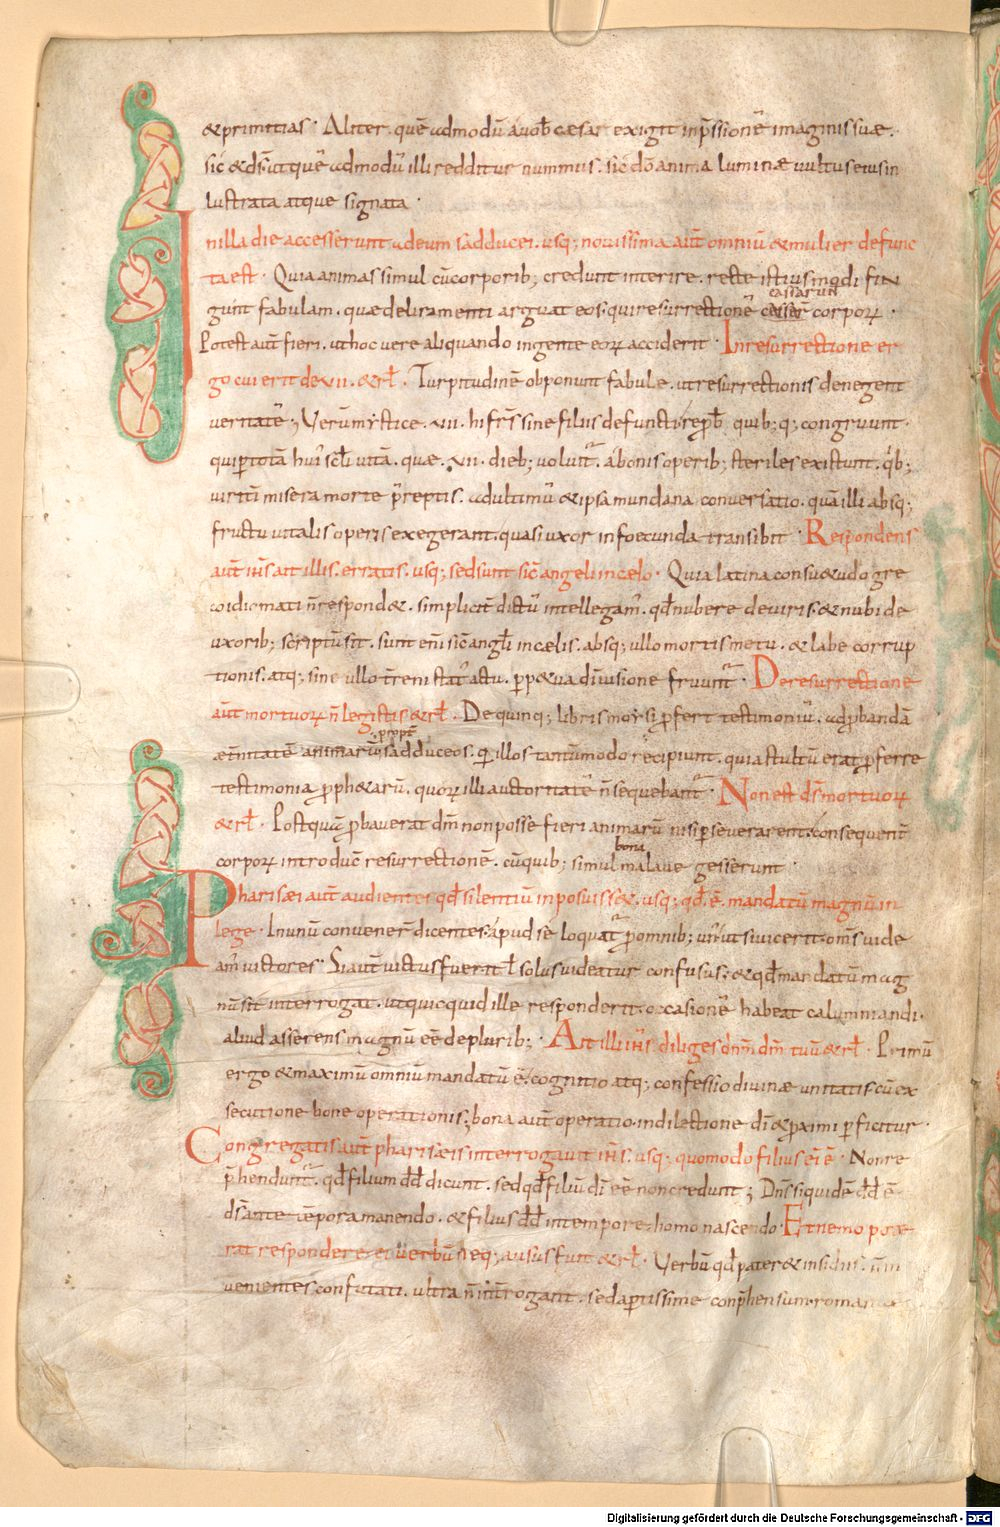 &primitias· Aliter. quē admodū a uob̄ cæsar exigit inp̄ssionē imaginis suæ.
sic̄ & d̄s. ut quē admodū illi redditur nummus. sic̄ dō anima lumine uultus eius in
lustrata atque signata·
In illa die accesserunt ad eum sadducei. usq; nouissima aut̄ omniū & mulier defunc
ta est· Quia animas simul cū corporib; credunt interire. recte istius modi fin
cassarum
gunt fabulam. quæ deliramenti arguat eos. qui resurrectionē corporꝝ·
Potest aut̄ fieri. ut hoc uere aliquando in gente eorꝝ acciderit· In resurrectione er
go cui erit de VII. & rł. Turpitudinē obponunt fabule. ut resurrectionis denegent
ueritatē; Verum mystice. VII. hi fr̄s sine filiis defuncti. reprob̄ quib;q; congruunt.
qui p totā hui' sc̄li uitā. quæ. VII. dieb; uoluit̄. a bonis operib; steriles existunt. qb;
uiritī misera morte p̄reptis. ad ultimū & ipsa mundana conuersatio. quā illi absq;
fructu uitalis operis exegerant. quasi uxor infoecunda transibit· Respondens
aut̄ ih̄s ait illis. erratis. usq; sed sunt sic̄ angeli in cælo· Quia latina consu&udo gre
co idiomati n̄ respond&. simplicit̄ dictū intellegam̄. qd̄ nubere de uiris. & nubi de
uxorib; scriptū sit. sunt en̄ sic̄ angłi in cælis. absq; ullo mortis metu. & labe corrup
tionis. atq; sine ullo t̄reni stat' actu. ꝑp&ua di uisione fruunt̄· De resurrectione
aut̄ mortuorꝝ n̄ legistis & rł. De quinq; libris moysi ꝓfert testimoniū. ad ꝓbandā
.ꝓpt̄.
æt̄nitatē animarū sadduceos. qui illos tantūmodo recipiunt. quia stultū erat ꝓferre
testimonia ꝓph&arū. quorꝝ illi auctoritatē n̄ sequebant̄· Non est d̄s mortuorꝝ
& rł. Postquā ꝓbauerat dm̄ non posse fieri animarū nisi ꝑseuerarent. consequent̄
bona
corporꝝ introduc̄ resurrectionē. cū quib; simul mala ue gesserunt·
Pharisæi aut̄ audientes qd̄ silentiū inposuiss&. usq; qd̄ ē. mandatū magnū in
lege· In unū conuener̄ dicentes apud se. loquat̄ ꝓ omnib; un' ut si uicerit. om̄s uide
am̄ uictores· Si aut̄ uictus fuerit ł solus uideatur confusus; & qd̄ mandatum mag
nū sit interrogat. ut quicquid ille responderit. occasionē habeat calumniandi.
aliud asserens magnū eē de plurib;· Ait illi ih̄s. diliges dn̄m dm̄ tuū & rł. Primū
ergo & maximū omniū mandatū ē. cognitio atq; confessio diuinæ unitatis. cū ex
secutione bone operationis; bona aut̄ operatio. in dilectione dī & ꝓximi ꝑficitur.
Congregatis aut̄ pharisæis interrogauit ih̄s. usq; quomodo filius ei' ē· Non re
p̄hendunt̄. qd̄ filium dd̄ dicunt. sed qd̄ filiū dī eē non credunt; Dn̄s siquidē dd̄ ē
d̄s ante tēpora manendo. & filius dd̄ in tempore. homo nascendo. Et nemo pote
rat respondere ei uerbū neq; ausus fuit & rł. Verbū qd̄ pater & insidiis
uenientes confutati. ultra n̄ int̄rogant. sed aptissime conp̄hensum
Digitalisierung gefördert durch die Deutsche Forschungsgemeinschaft - DFG